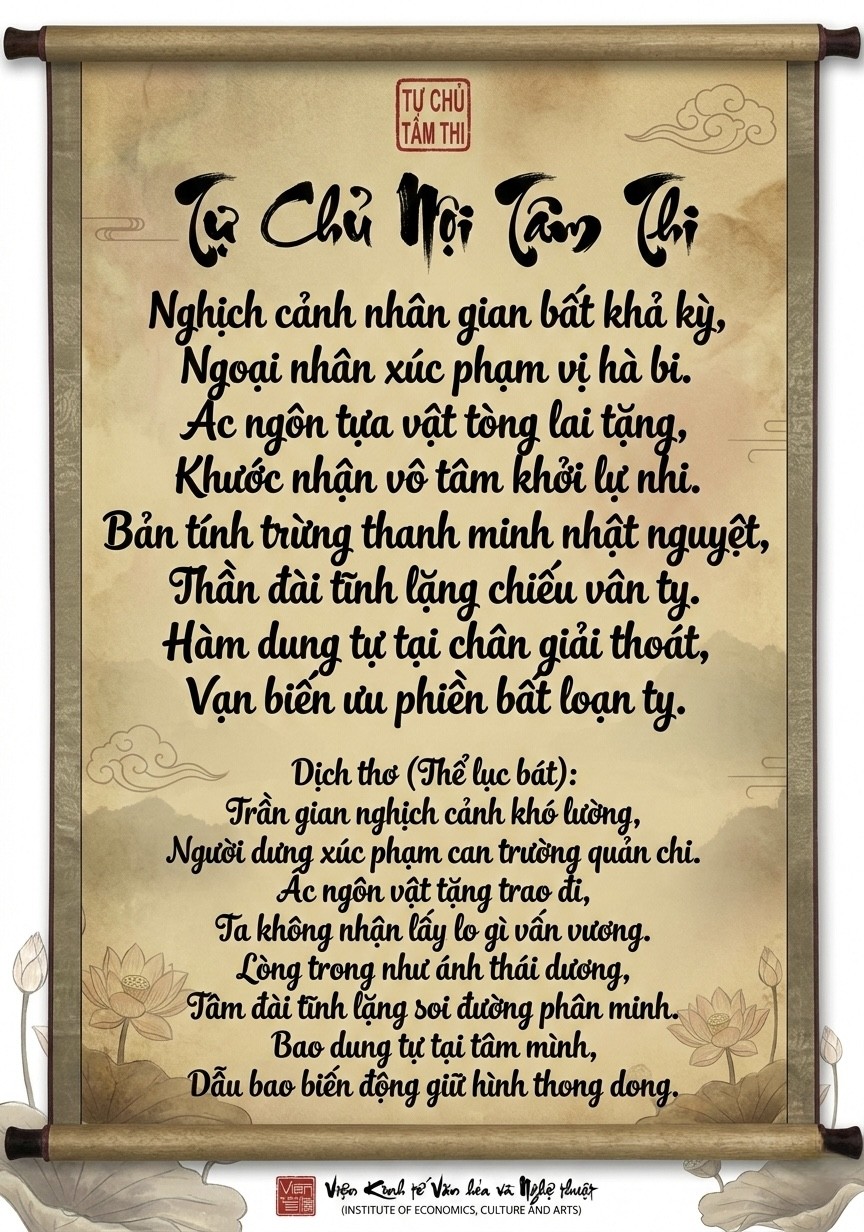 TỰ CHỦ
TÂM THI
Tự Chủ Nội Tâm Thi
Nghịch cảnh nhân gian bất khả kỳ,
Ngoại nhân xúc phạm vị hà bi.
Ác ngôn tựa vật tòng lai tặng,
Khước nhận vô tâm khởi lự nhi.
Bản tính trừng thanh minh nhật nguyệt,
Thần đài tĩnh lặng chiếu vân ty.
Hàm dung tự tại chân giải thoát,
Vạn biến ưu phiền bất loạn ty.
Dịch thơ (Thể lục bát):
Trần gian nghịch cảnh khó lường,
Người dưng xúc phạm can trường quản chi.
Ác ngôn vật tặng trao đi,
Ta không nhận lấy lo gì vấn vương.
Lòng trong như ánh thái dương,
Tâm đài tĩnh lặng soi đường phân minh.
Bao dung tự tại tâm mình,
Dẫu bao biến động giữ hình thong dong.
Viện Kinh tế Văn hóa và Nghệ thuật
(INSTITUTE OF ECONOMICS, CULTURE AND ARTS)